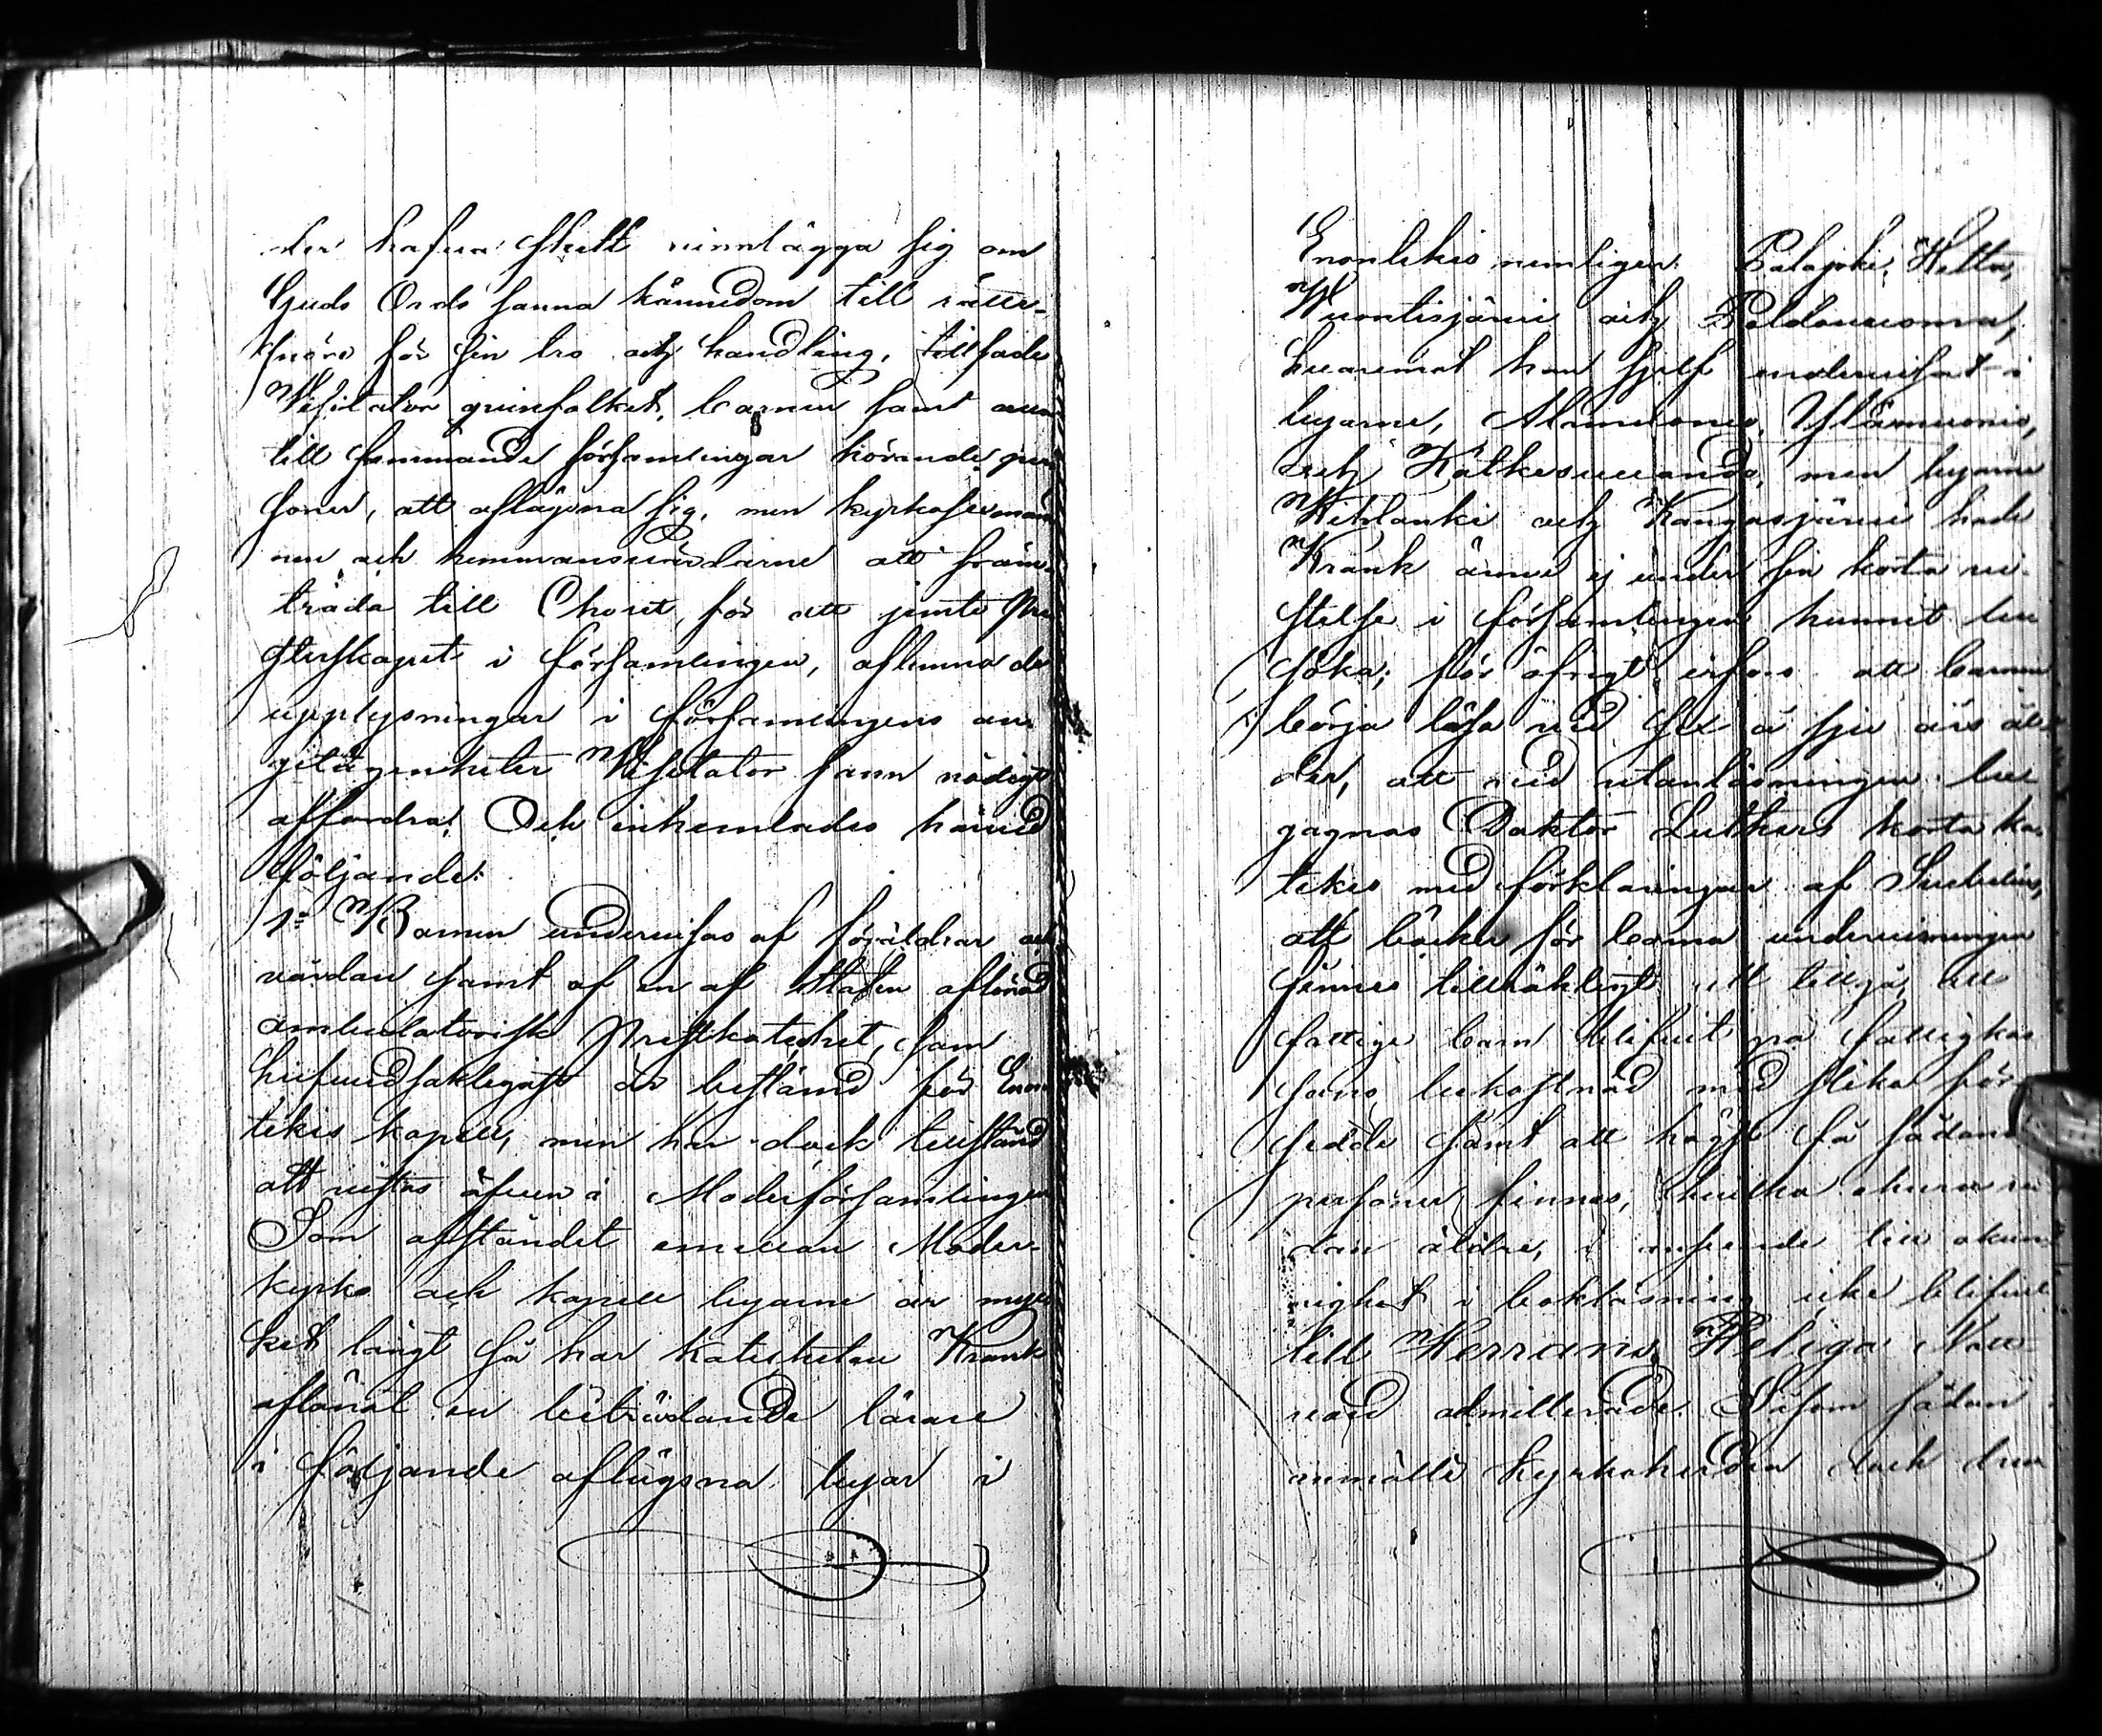 der hafva skett vinnlägga sig om
Guds Ords sanna kännedom till rätte-
snöre för sin tro och handling, tillsade
Visitator qvinfolket, barnen samt
till främmande församlingar hörande per
soner, att aflägsna sig, men kyrkoförmän
nen och hemmansvärdarne att fram-
träda till Choret för att jemte Pre
sterskapet i församlingen, aflemna de
upplysningar i församlingens an-
gelägenheter Visitator fann nödigt
affordra. Och inhemtades härvid
följande:
1o Barnen undervisas af föräldrar och
vårdare samt af en af Staten aflönad
ambulatorisk Prestkateket, som
hufvudsakligast är bestämd för Enon-
tekis kapell, men har dock tillstånd
att vistas äfven i Moderförsamlingen
Som afståndet emellan Moder-
kyrko och kapell byarne är myc
ket långt så har kateketen Krank
aflönat en biträdande lärare
i följande aflägsna byar i
Enontekis nemligen Palajoki, Hetta,
Vuontisjärvi och Peldovuoma,
hvaremot han sjelf undervisat i
byarne, Almuonio, Yflimuonio,
och Kätkesuvando, men byarne
Kihlanki och Kangosjärvi hade
Krank ännu ej under sin korta vi-
stelse i församlingen hunnit be
söka; för öfrigt erfors att barnen
börja läsa vid sex à sju års ål-
der, att vid utanläsningen be
gagnas Doktor Luthers korta ka
tekes med förklaringar af Svebelius,
att böcker för barna undervisningen
finnes tillräkligt att tillgå, att
fattige barn blifvit på fattigkas
sans bekostnad med slika för-
sedde samt att högst få sådana
personer finnes, hvilka
dan äldre, i anseende till okun-
nighet i bokläsning icke blifvit
till Herrans Heliga Natt-
vard admitterade. Såsom sådan
anmälte kyrkoherden dock